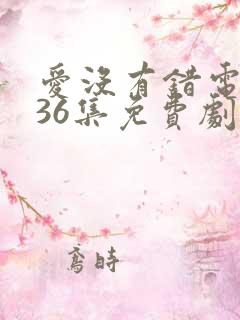 愛沒有錯電
36集免費劇
鴦時